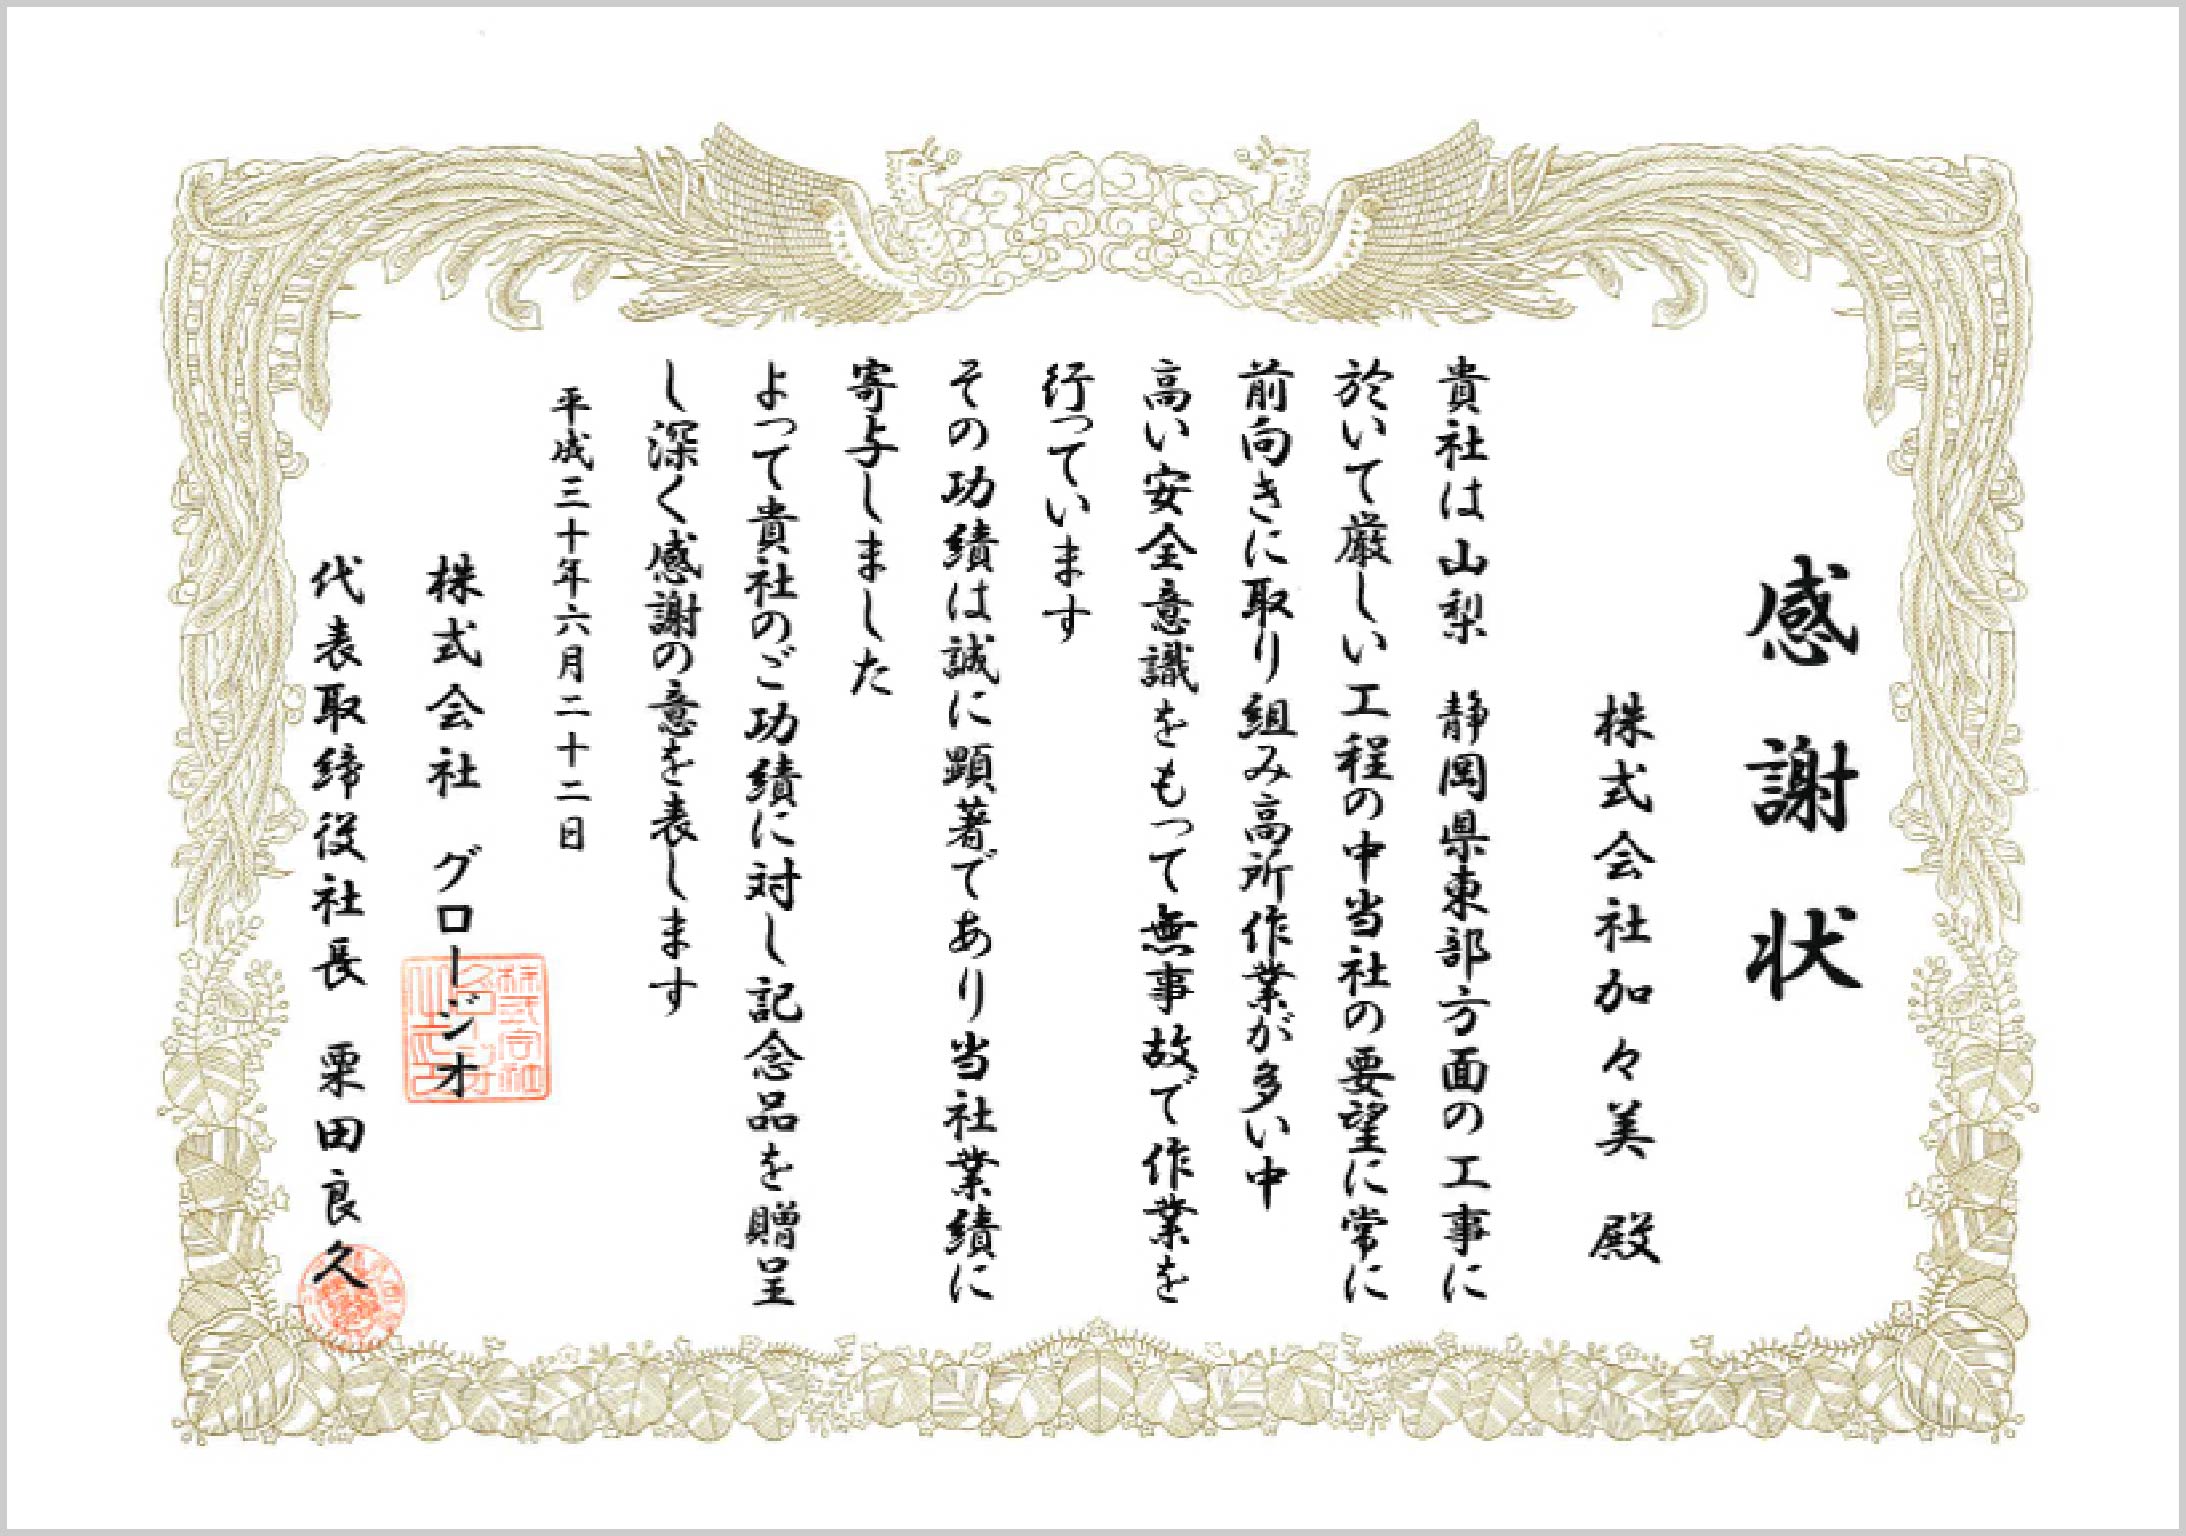 感謝状
株式会社加々美 殿
貴社は山梨 静岡県東部方面の工事に
於いて厳しい工程の中当社の要望に常に
前向きに取り組み高所作業が多い中
高い安全意識をもって無事故で作業を
行っています
その功績は誠に顕著であり当社業績に
寄与しました
よって貴社のご功績に対し記念品を贈呈
し深く感謝の意を表します
平成三十年六月二十二日
株式会社 グロージオ
代表取締役社長 栗田良久